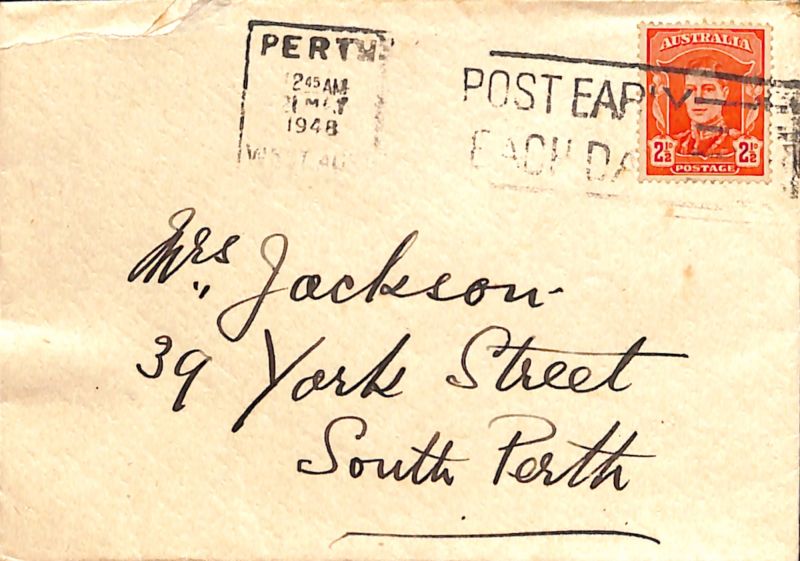 PERTH
1245 AM
1948
POST EARLY
EACH DAY
AUSTRALIA
2½ 2½
POSTAGE
Mrs Jackson
39 York Street
South Perth